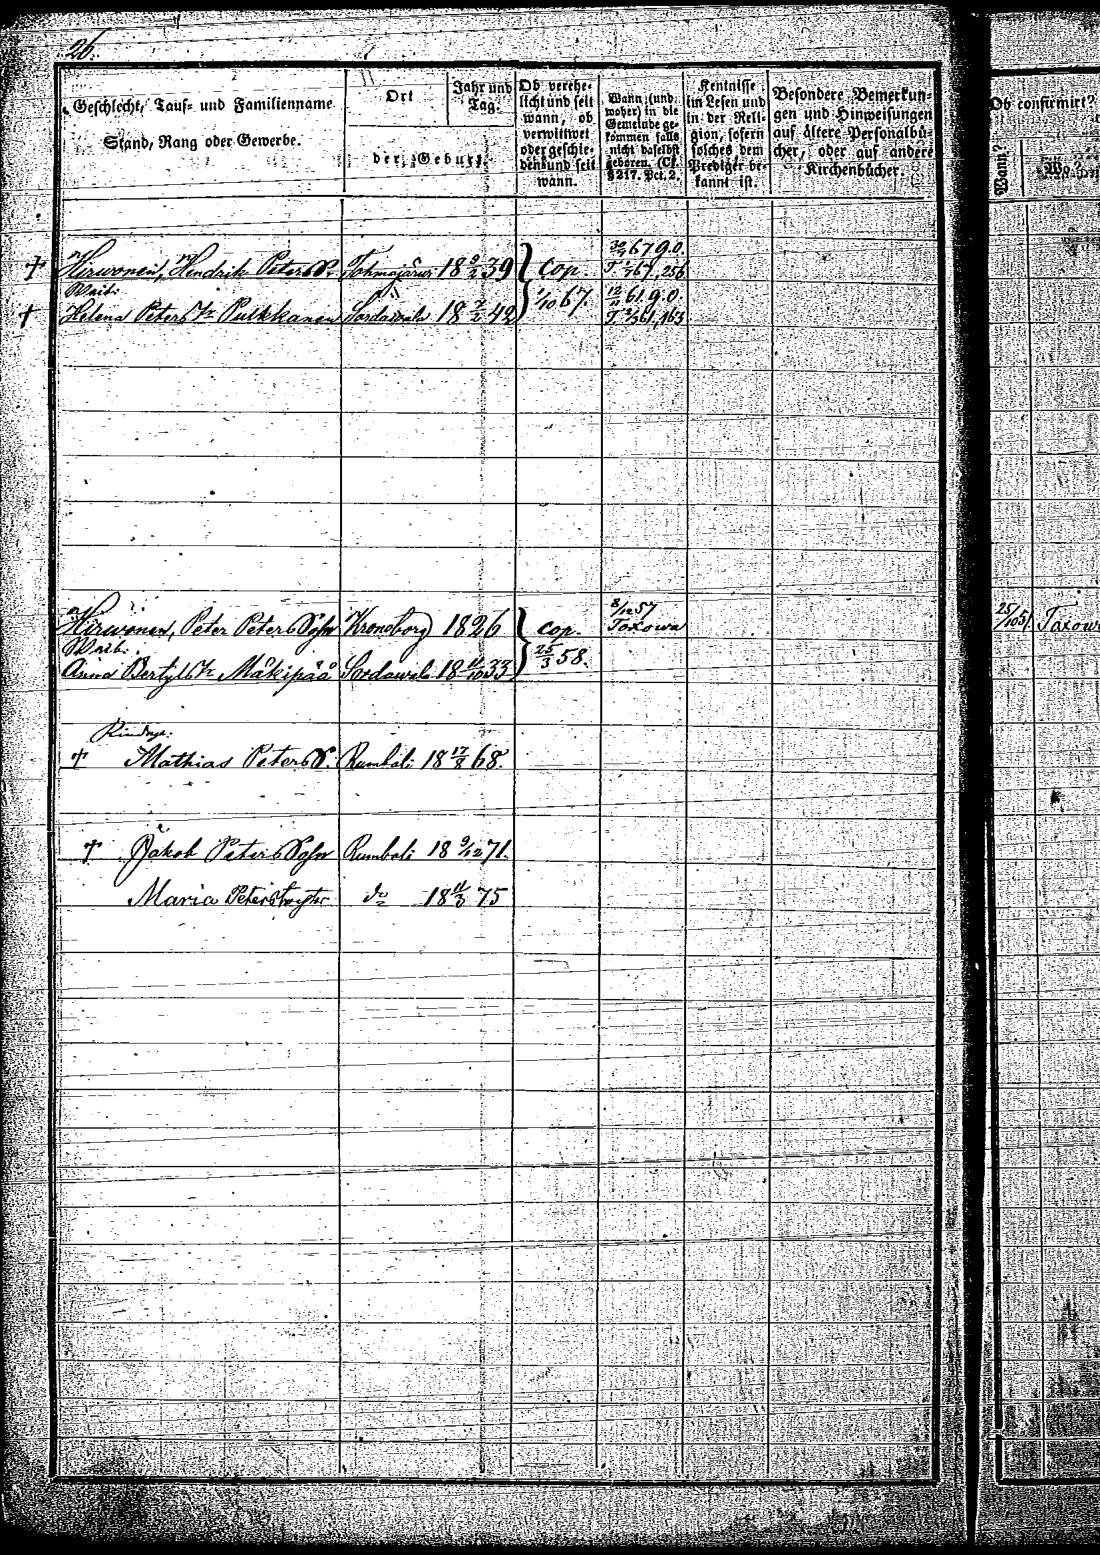 26.
Geschlecht, Tauf- und Familienname
Stand, Rang oder Gewerbe.
Ort
Jahr und
Tag.
der Geburt.
Ob verehe-
licht und seit
wann, ob
verwittwet
oder geschie-
den und seit
wann.
Wann (und
woher) in die
Gemeinde ge-
kommen falls
nicht daselbst
geboren. (Cf.
§ 217. Pct. 2.
Kentnisse
im Lesen und
in der Reli-
gion, sofern
solches dem
Prediger be-
kannt ist.
Besondere Bemerkun-
gen und Hinweisungen
auf ältere Personalbü-
cher, oder auf andere
Kirchenbücher.
Ob confirmirt?
Wann?
Wo?
† Hirwonen, Hendrik Peters S. Tohmajärwi 18 9/2 39 cop. 67 g.o.
T. 67, 256
Weib:
† Helena Peters Tr Pulkkanen Sordawala 18 7/2 42 1/10 67. 12/ 61 g.o.
T. 61, 163
Hirwonen, Peter Peters Sohn Kronoborg 1826 cop. 8/12 57 Toxowa 25/10 51 Toxowa
Weib:
Anna Bertyls Tr Mäkipää Sordawala 18 11/10 33 25/3 58.
Kinder:
† Mathias Peters S. Rumbali 18 17/8 68.
† Jakob Peters Sohn Rumbali 18 9/12 71.
Maria Peters Tochter do 18 11/3 75